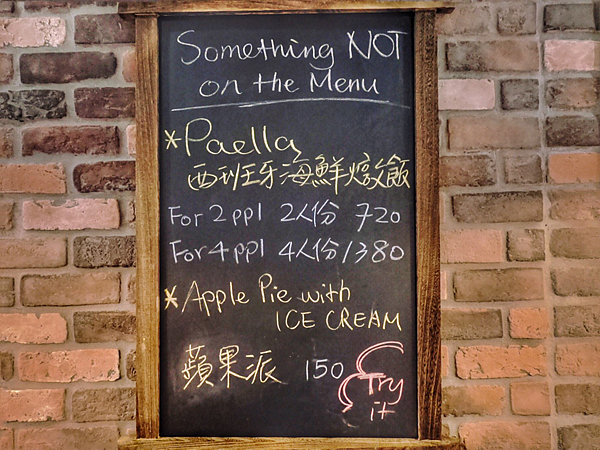 Something NOT
on the Menu
*Paella
西班牙海鮮燉飯
For 2 ppl 2人份 720
For 4 ppl 4人份 1380
*Apple Pie with
ICE CREAM
蘋果派 150
Try
it